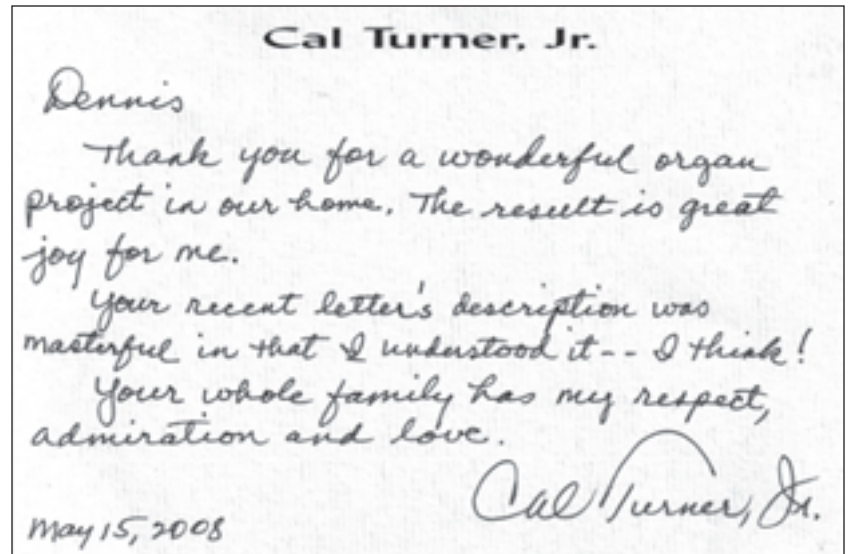 Cal Turner, Jr.
Dennis
Thank you for a wonderful organ
project in our home. The result is great
joy for me.
Your recent letter's description was
masterful in that I understood it -- I think!
Your whole family has my respect,
admiration and love.
Cal Turner, Jr.
May 15, 2008